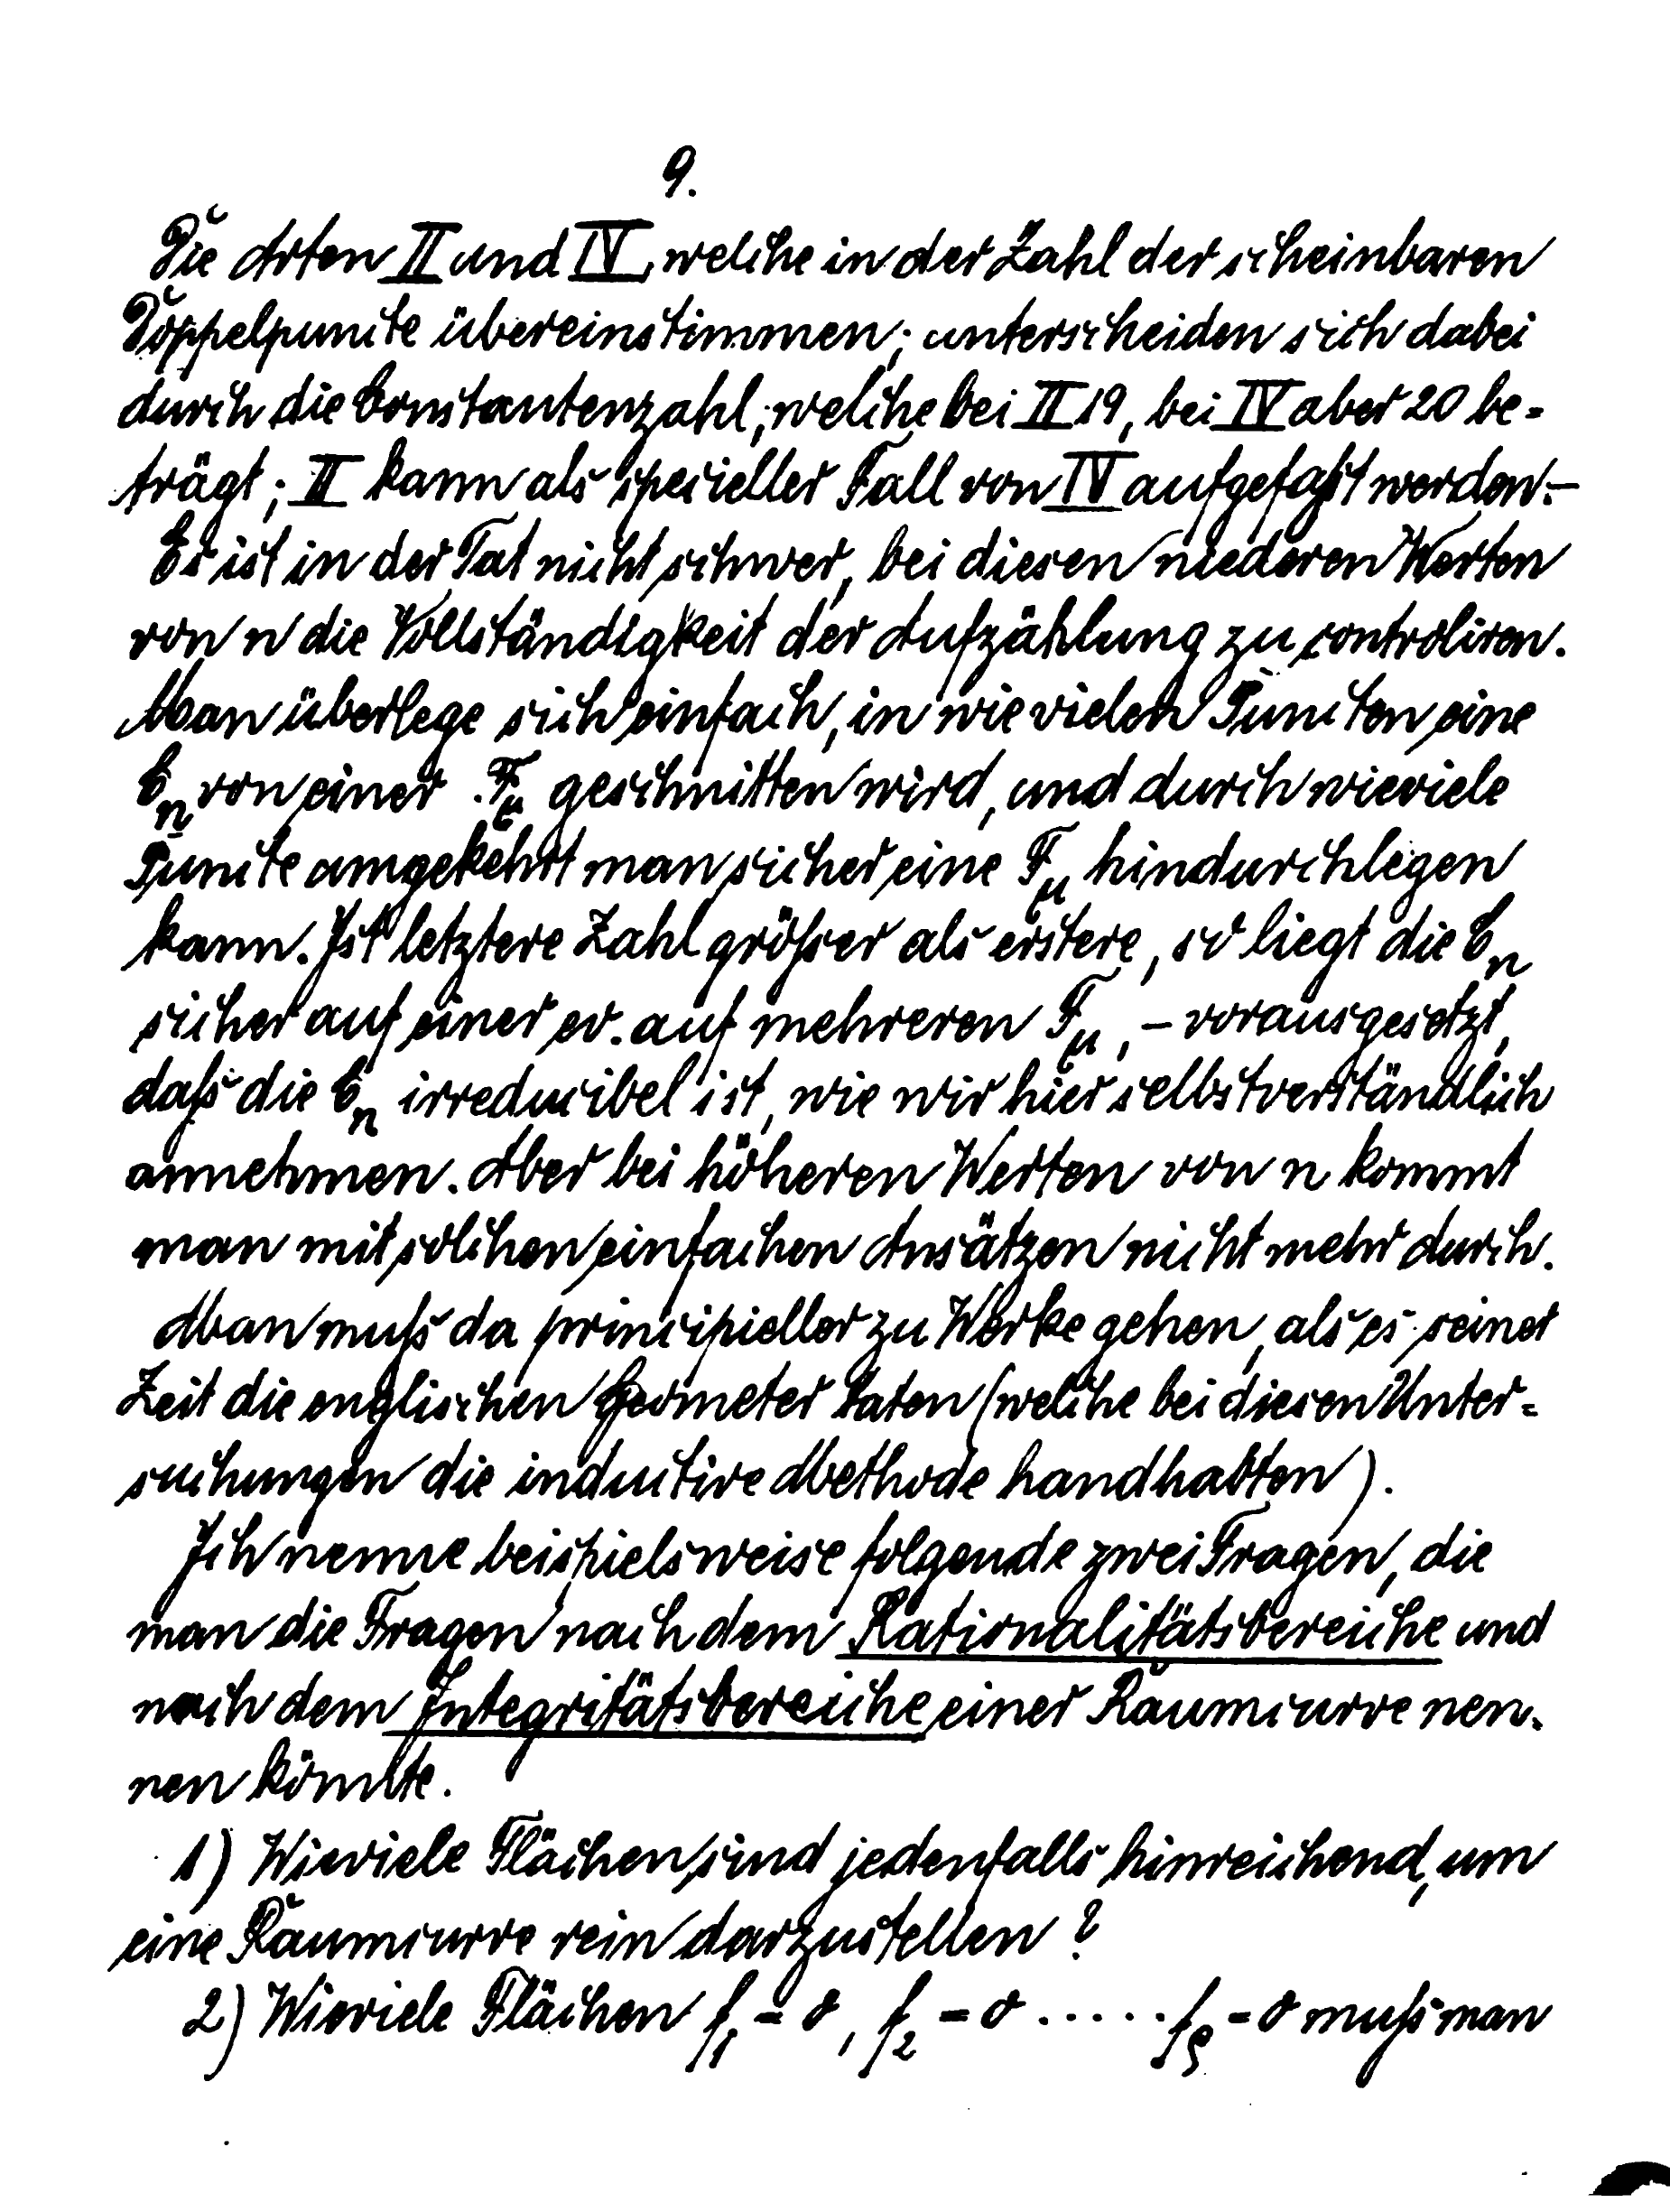 9.
Die Arten II und IV, welche in der Zahl der scheinbaren
Doppelpuncte übereinstimmen, unterscheiden sich dabei
durch die Constantenzahl, welche bei II 19, bei IV aber 20 be-
trägt; II kann als specieller Fall von IV aufgefaßt werden.-
Es ist in der Tat nicht schwer, bei diesen niederen Werten
von n die Vollständigkeit der Aufzählung zu controliren.
Man überlege sich einfach, in wie vielen Puncten eine
C_n von einer F_μ geschnitten wird, und durch wieviele
Puncte umgekehrt man sicher eine F_μ hindurchlegen
kann. Ist letztere Zahl größer als erstere, so liegt die C_n
sicher auf einer ev. auf mehreren F_μ, - vorausgesetzt,
daß die C_n irreducibel ist, wie wir hier selbstverständlich
annehmen. Aber bei höheren Werten von n kommt
man mit solchen einfachen Ansätzen nicht mehr durch.
Man muß da principieller zu Werke gehen, als es seiner
Zeit die englischen Geometer taten (welche bei diesen Unter-
suchungen die inductive Methode handhabten).
Ich nenne beispielsweise folgende zwei Fragen, die
man die Fragen nach dem Rationalitätsbereiche und
nach dem Integritätsbereiche einer Raumcurve nen-
nen könnte.
1) Wieviele Flächen sind jedenfalls hinreichend, um
eine Raumcurve rein darzustellen?
2) Wieviele Flächen f_1 = 0, f_2 = 0 ..... f_ρ = 0 muß man